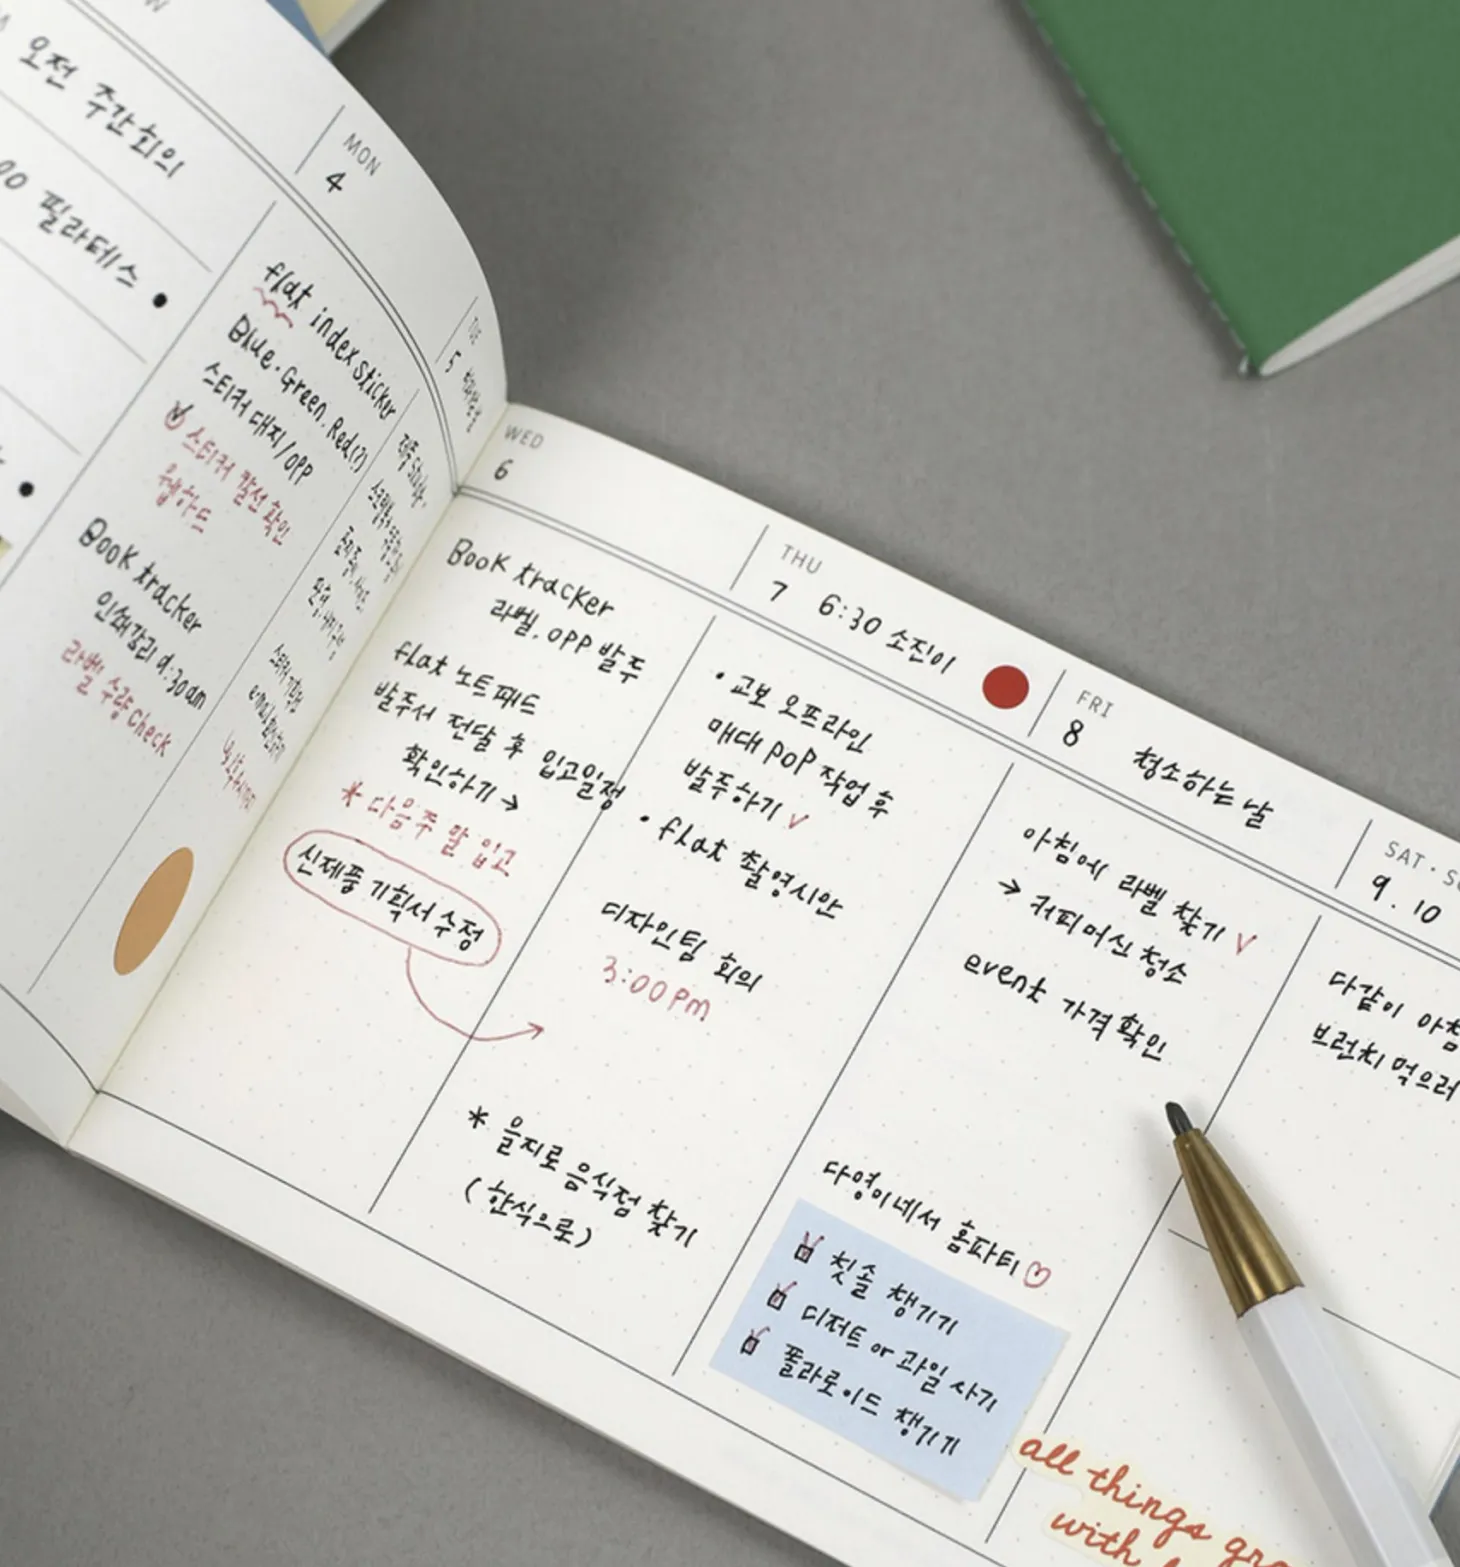 오전 주간회의
00 필라테스
MON
4
flat index sticker
Blue. Green. Red(?)
스티커 대지/opp
스티커 칼선 확인
웹하드
Book tracker
인쇄감리 9:30am
라벨 수량 check
TUE
5
WED
6
Book tracker
라벨. opp 발주
flat 노트패드
발주서 전달 후 입고일정
확인하기 →
* 다음주 말 입고
신제품 기획서 수정
THU
7 6:30 소진이
• 교보 오프라인
매대 POP 작업 후
발주하기 ✓
• flat 촬영시안
디자인팀 회의
3:00 pm
* 을지로 음식점 찾기
(한식으로)
FRI
8 청소하는 날
아침에 라벨 찾기 ✓
→ 커피머신 청소
event 가격 확인
다영이네서 홈파티♡
칫솔 챙기기
디저트 or 과일 사기
폴라로이드 챙기기
SAT ·
9. 10
다같이
브런치 먹으러
all things
with